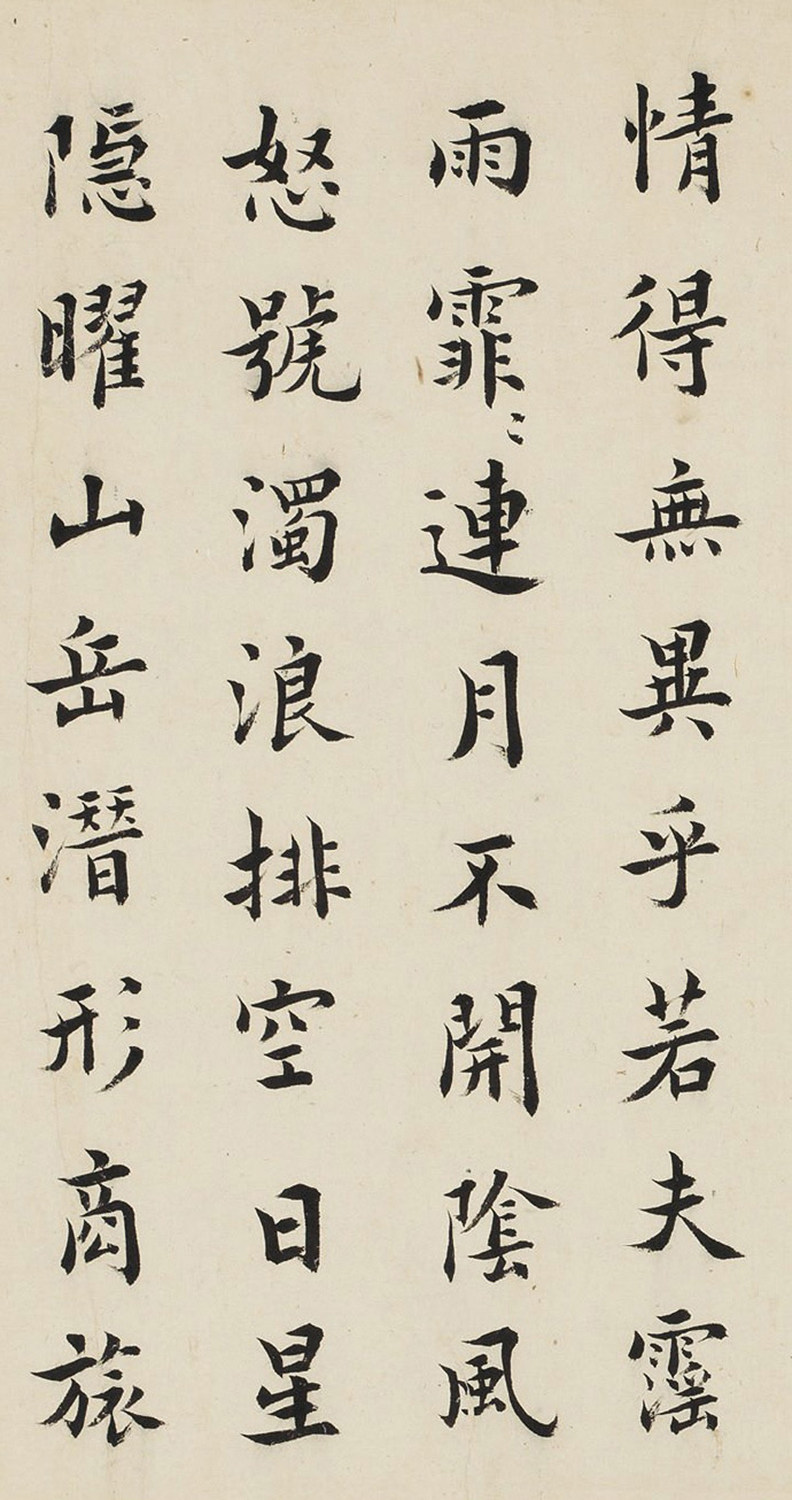 情得無異乎若夫霪
雨霏〻連月不開陰風
怒號濁浪排空日星
隱曜山岳潛形商旅